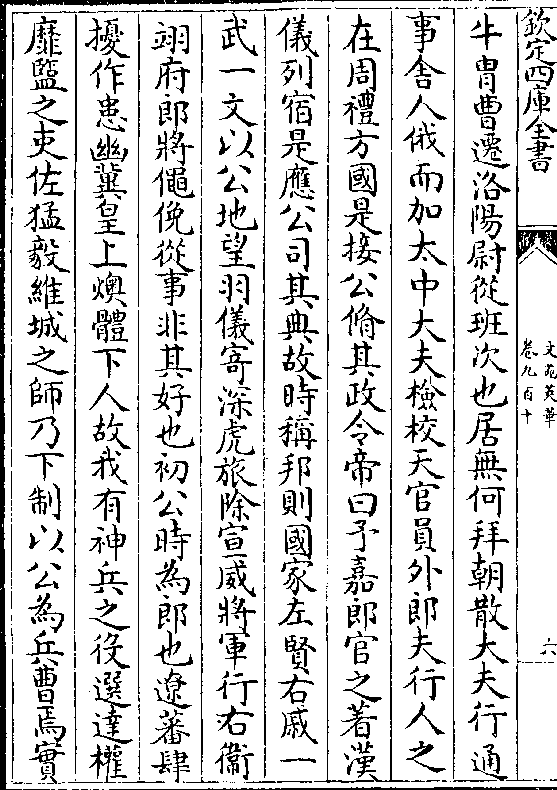 欽定四庫全書
文苑英華
卷九百十
六
牛胄曹遷洛陽尉從班次也居無何拜朝散大夫行通
事舍人俄而加太中大夫檢校天官員外郎夫行人之
在周禮方國是接公脩其政令帝曰予嘉郎官之著漢
儀列宿是應公司其典故時稱邦則國家左賢右戚一
武一文以公地望羽儀寄深虎旅除宣威將軍行右衞
翊府郎將僶俛從事非其好也初公時為郎也遼蕃肆
擾作患幽冀皇上燠體下人故我有神兵之役選達權
靡盬之吏佐猛毅維城之師乃下制以公為兵曹焉實